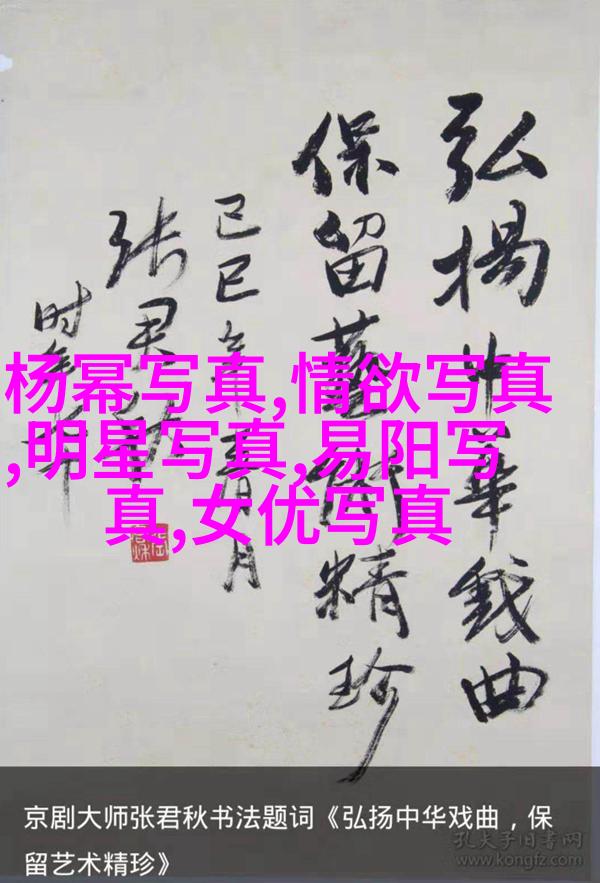 弘揚中華戏曲
保留藝術精珍
己巳年
张君秋
时年
杨幂写真,情欲写真
,明星写真,易阳写
真,女优写真
京剧大师张君秋书法题词《弘扬中华戏曲，保
留艺术精珍》
孔夫子旧书网
www.kongfz.com